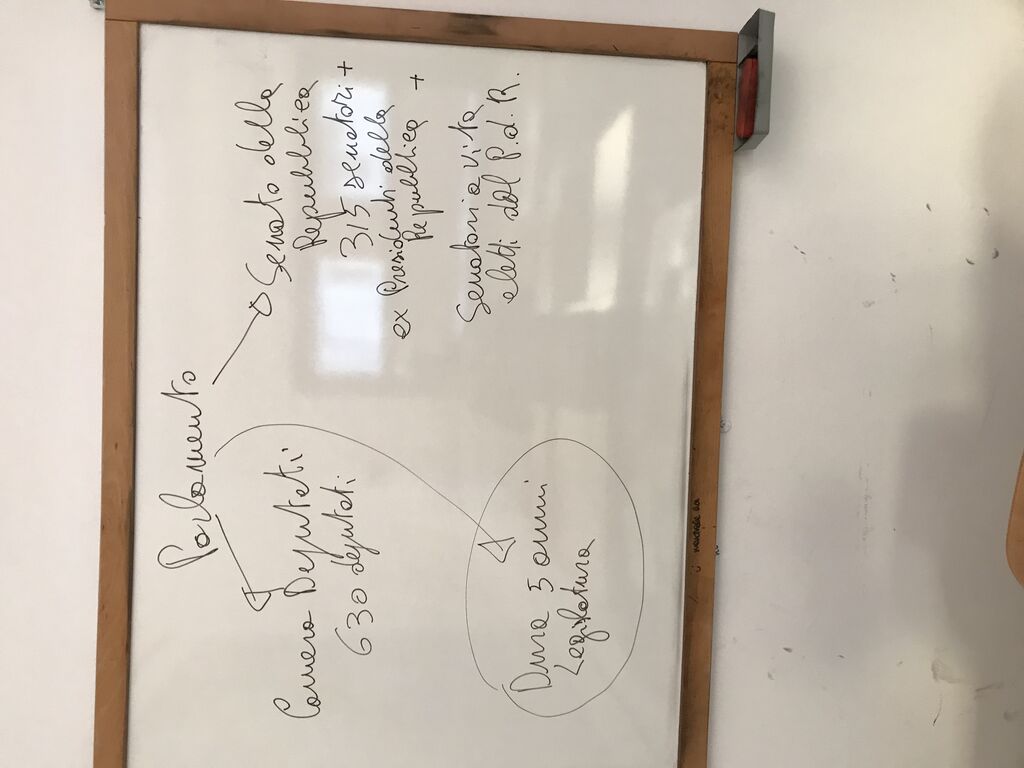 Parlamento
Camera Deputati
630 deputati
Senato della
Repubblica
315 senatori +
ex Presidenti della
Repubblica +
Senatori a vita
eletti dal P.d.R.
Dura 5 anni
Legislatura